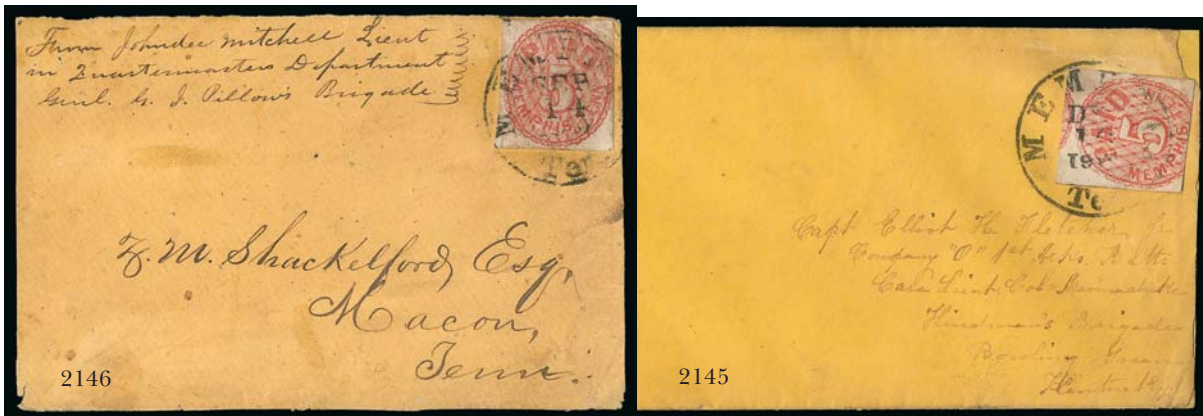 From Johndee Mitchell Lieut
in Quartermasters Department
Genl. G. J. Pillow's Brigade
PAID
5
MEMPHIS, TENN.
MEM
SEP
14
Ten
Z. M. Shackelford, Esq,
Macon,
Tenn.
2146
PAID
5
MEMPHIS,
MEM
D
Te
Capt Elliot H. Fletcher Jr
Company "O" 1st Arks. Batt.
Care Lieut. Col. Marmaduke
Hindman's Brigade
Bowling Green
Kentucky
2145